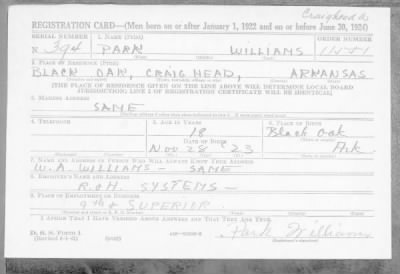 Craighead
REGISTRATION CARD—(Men born on or after January 1, 1922 and on or before June 30, 1924)
SERIAL NUMBER 1. NAME (Print) ORDER NUMBER
N 394 PARK WILLIAMS
2. PLACE OF RESIDENCE (Print)
BLACK OAK, CRAIGHEAD, ARKANSAS
[THE PLACE OF RESIDENCE GIVEN ON THE LINE ABOVE WILL DETERMINE LOCAL BOARD
JURISDICTION; LINE 2 OF REGISTRATION CERTIFICATE WILL BE IDENTICAL]
3. MAILING ADDRESS
SAME
4. TELEPHONE 5. AGE IN YEARS 6. PLACE OF BIRTH
18 Black Oak
DATE OF BIRTH
NOV 28 23 Ark.
7. NAME AND ADDRESS OF PERSON WHO WILL ALWAYS KNOW YOUR ADDRESS
W.A. WILLIAMS — SAME
8. EMPLOYER'S NAME AND ADDRESS
SYSTEMS —
9. PLACE OF EMPLOYMENT OR BUSINESS
9th & SUPERIOR
I AFFIRM THAT I HAVE VERIFIED ABOVE ANSWERS AND THAT THEY ARE TRUE.
D. S. S. FORM 1
Park Williams